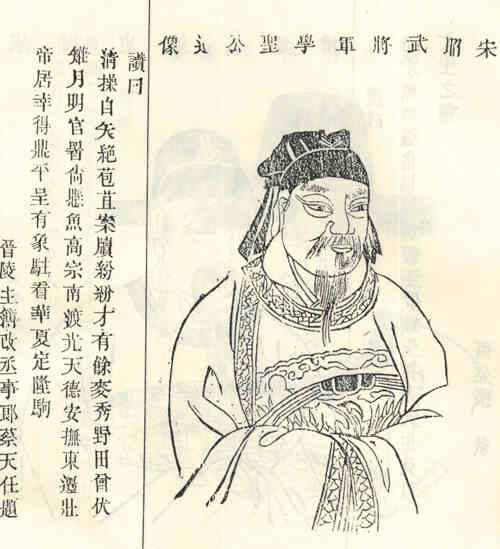 宋昭武將軍學聖公遺像
讚曰
清操自矢絕苞苴案牘紛紛才有餘麥秀野田曾伏
雉月明官署尚懸魚高宗南渡光天德安撫東遷壯
帝居幸得鼎平呈有象駐看華夏定隆駒
晉陵主簿改丞事郎蔡天任題